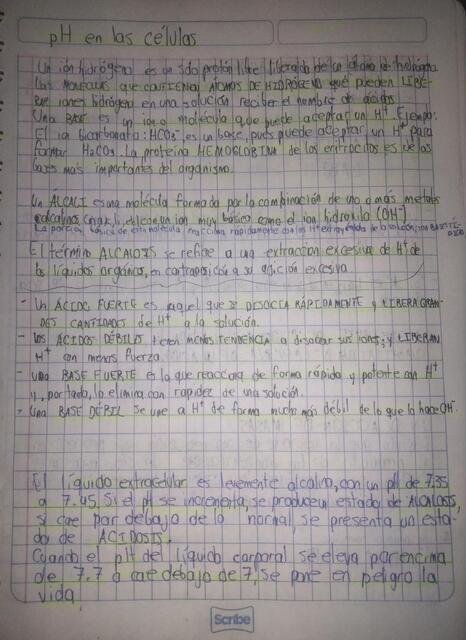 pH en las células
Un ión hidrógeno es un solo protón libre liberado de un átomo de hidrógeno
Las MOLÉCULAS que CONTIENEN ÁTOMOS DE HIDRÓGENO que pueden LIBE-
RAR iones hidrógeno en una solución reciben el nombre de ácidos
Una BASE es un ion o molécula que puede aceptar un H⁺. Ejempo:
El ia bicarbonata: HCO₃⁻, es un base, pues puede aceptar un H⁺ para
formar H₂CO₃. La proteína HEMOGLOBINA de los eritrocitos es de las
bases más importantes del organismo.
Un ALCALI es una molécula formada por la combinación de uno o más metales
alcalinos (na, k, li, etc) con un ion muy básico como el ion hidroxilo (OH⁻)
La porción básica de esta molécula reacciona rápidamente con los H⁺ de la solución, son BASES TÍ-
PICAS
El término ALCALOSIS se refiere a una extracción excesiva de H⁺ de
los líquidos orgánicos, en contraposición a su adición excesiva
- Un ÁCIDO FUERTE es aquel que se DISOCIA RÁPIDAMENTE y LIBERA GRAN-
DES CANTIDADES de H⁺ a la solución.
- Los ÁCIDOS DÉBILES tienen MENOS TENDENCIA a disociar sus iones, y LIBERAN
H⁺ con menos fuerza
- una BASE FUERTE es la que reacciona de forma rápida y potente con H⁺
y, por tado, lo elimina con rapidez de una solución.
- Una BASE DÉBIL se une a H⁺ de forma mucho más débil de lo que lo hace OH⁻
El líquido extracelular es levemente alcalino, con un pH de 7.35
a 7.45. Si el pH se incrementa, se produce un estado de ALCALOSIS,
si cae por debajo de lo normal, se presenta un esta-
do de ACIDOSIS.
Cuando el pH del líquido corporal se eleva por encima
de 7.7 o cae debajo de 7, se pone en peligro la
vida
Scribe